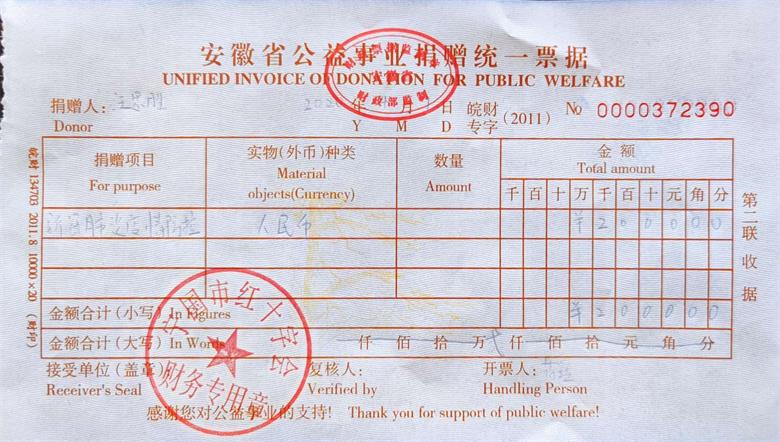 安徽省公益事业捐赠统一票据
UNIFIED INVOICE OF DONATION FOR PUBLIC WELFARE
财政部监制
捐赠人：
Donor
年 月 日
Y M D
皖财
专字
(2011)
№ 0000372390
捐赠项目
For purpose
实物(外币)种类
Material
objects(Currency)
数量
Amount
金额
Total amount
千 百 十 万 千 百 十 元 角 分
人民币
¥ 2 0 0 0 0 0
金额合计(小写) In Figures
¥ 2 0 0 0 0 0
金额合计(大写) In Words
仟 佰 拾 万 贰 仟 佰 拾 元 角 分
接受单位(盖章)
Receiver's Seal
复核人：
Verified by
开票人：
Handling Person
感谢您对公益事业的支持! Thank you for support of public welfare!
宁国市红十字会
财务专用章
皖财 134703 2011.8 10000×20
第二联 收据